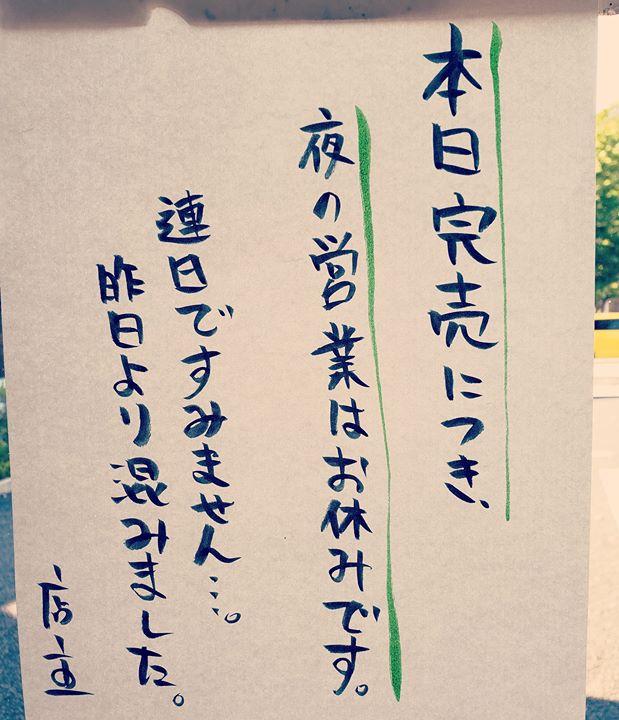 本日完売につき、
夜の営業はお休みです。
連日ですみません…。
昨日より混みました。
店主